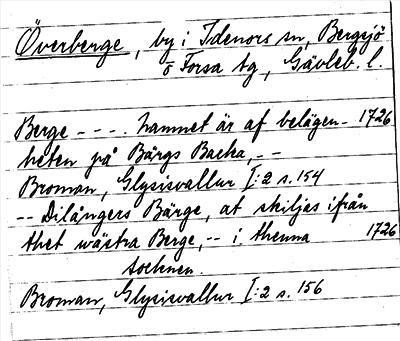 Överberge, by i Idenors sn, Bergsjö
o Forsa tg, Gävleb. l.
Berge - - - . hamnet är af belägen- 1726
heten på Bärgs Backa, - -
Broman, Glysisvallur I:2 s. 154
-- Dilångers Bärge, at skiljas ifrån
thet wästra Berge, -- i thenna 1726
sochnen.
Broman, Glysisvallur I:2 s. 156